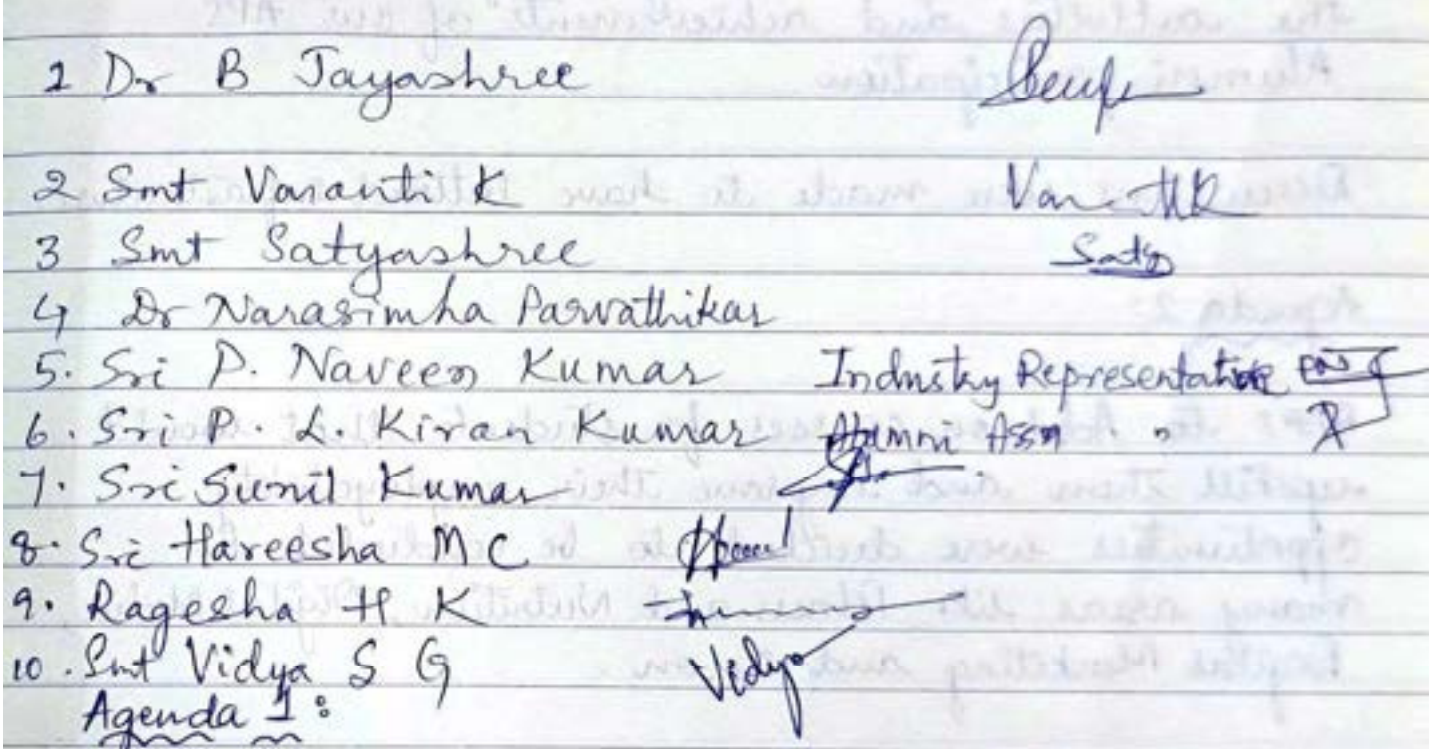 1 Dr B Jayashree
2 Smt Vasanti K
3 Smt Satyashree Satya
4 Dr Narasimha Parvathikar
5. Sri P. Naveen Kumar Industry Representative
6. Sri P. L. Kiran Kumar Alumni Assn "
7. Sri Sunil Kumar
8. Sri Hareesha M C
9. Ragesha H K
10. Smt Vidya S G Vidya
Agenda 1: